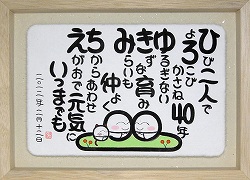 ひび二人で
よろこび
かさね40年
ゆるぎない
きずな育み
みらいも
仲よく
ちからあわせ
えがおで元気に
いつまでも